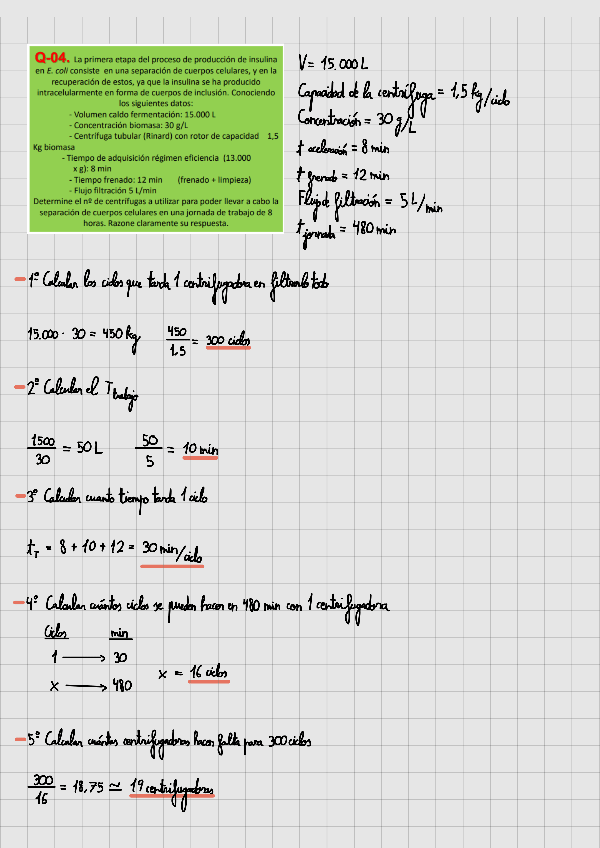 Q-04. La primera etapa del proceso de producción de insulina
en E. coli consiste en una separación de cuerpos celulares, y en la
recuperación de estos, ya que la insulina se ha producido
intracelularmente en forma de cuerpos de inclusión. Conociendo
los siguientes datos:
- Volumen caldo fermentación: 15.000 L
- Concentración biomasa: 30 g/L
- Centrífuga tubular (Rinard) con rotor de capacidad 1,5
Kg biomasa
- Tiempo de adquisición régimen eficiencia (13.000
x g): 8 min
- Tiempo frenado: 12 min (frenado + limpieza)
- Flujo filtración 5 L/min
Determine el nº de centrífugas a utilizar para poder llevar a cabo la
separación de cuerpos celulares en una jornada de trabajo de 8
horas. Razone claramente su respuesta.
V = 15.000 L
Capacidad de la centrífuga = 1,5 Kg/ciclo
Concentración = 30 g/L
t aceleración = 8 min
t frenado = 12 min
Flujo de filtración = 5 L/min
t jornada = 480 min
- 1º Calcular los ciclos que tarda 1 centrifugadora en filtrarlo todo
15.000 · 30 = 450 kg 450/1,5 = 300 ciclos
- 2º Calcular el T trabajo
1500/30 = 50 L 50/5 = 10 min
- 3º Calcular cuanto tiempo tarda 1 ciclo
tT = 8 + 10 + 12 = 30 min/ciclo
- 4º Calcular cuántos ciclos se pueden hacer en 480 min con 1 centrifugadora
Ciclos min
1 → 30
x → 480 x = 16 ciclos
- 5º Calcular cuántas centrifugadoras hacen falta para 300 ciclos
300/16 = 18,75 ≃ 19 centrifugadoras